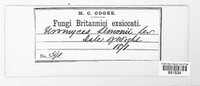 M. C. COOKE.
Fungi Britannici exsiccati.
Uromyces limonii Lev
Isle of Wight
No.